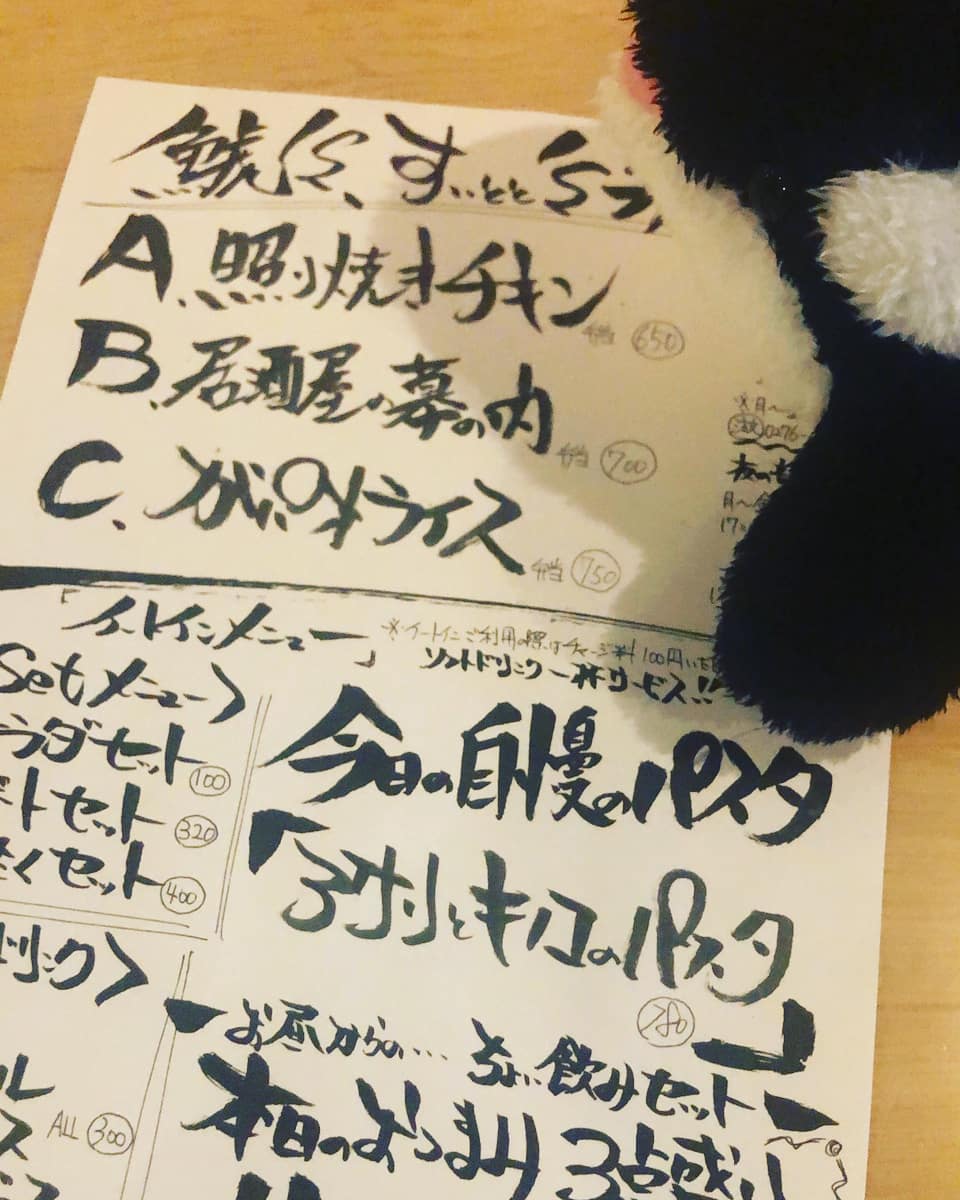 A、照り焼きチキン 弁当 650
B、居酒屋の幕の内 弁当 700
C、がいのすライス 弁当 750
※月〜
0276-
夜の
月〜金
17:
「イートインメニュー」
※イートインご利用の際はチャージ料100円いた
ソフトドリンク一杯サービス!!
Setメニュー>
ラダセット 100
セット 320
くセット 400
ドリンク>
ル
ス ALL 300
今日の自慢のパスタ
キノコのパスタ
」
780
お昼からの… ちょい飲みセット
本日のおつまみ3点盛り